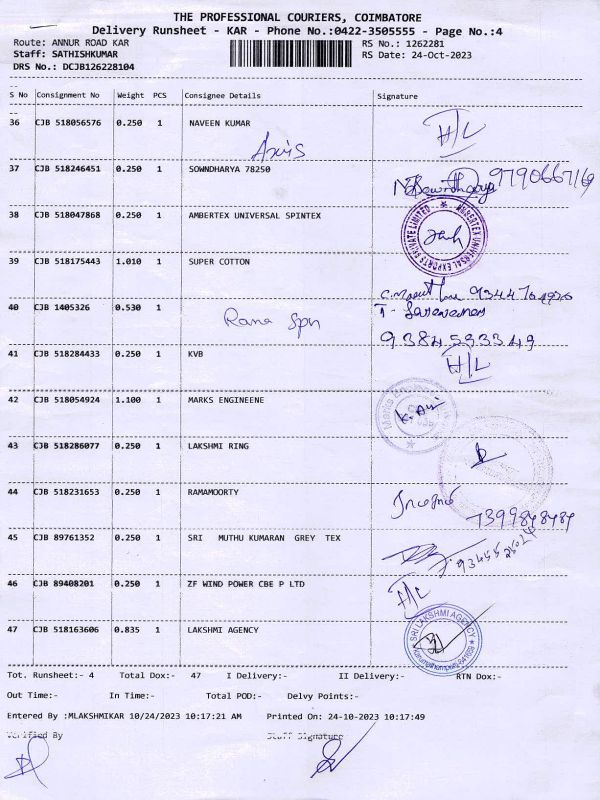 THE PROFESSIONAL COURIERS, COIMBATORE
Delivery Runsheet - KAR - Phone No.:0422-3505555 - Page No.:4
Route: ANNUR ROAD KAR RS No.: 1262281
Staff: SATHISHKUMAR RS Date: 24-Oct-2023
DRS No.: DCJB126228104
S No Consignment No Weight PCS Consignee Details Signature
36 CJB 518056576 0.250 1 NAVEEN KUMAR H/L
Axis
37 CJB 518246451 0.250 1 SOWNDHARYA 78250 9790667169
38 CJB 518047868 0.250 1 AMBERTEX UNIVERSAL SPINTEX
AMBERTEX UNIVERSAL EXPORTS PRIVATE LIMITED
39 CJB 518175443 1.010 1 SUPER COTTON
40 CJB 1405326 0.530 1 Rana Spn
9384593349
41 CJB 518284433 0.250 1 KVB H/L
42 CJB 518054924 1.100 1 MARKS ENGINEENE
43 CJB 518286077 0.250 1 LAKSHMI RING
44 CJB 518231653 0.250 1 RAMAMOORTY
45 CJB 89761352 0.250 1 SRI MUTHU KUMARAN GREY TEX
46 CJB 89408201 0.250 1 ZF WIND POWER CBE P LTD H/L
47 CJB 518163606 0.835 1 LAKSHMI AGENCY
SRI LAKSHMI AGENCY
Tot. Runsheet:- 4 Total Dox:- 47 I Delivery:- II Delivery:- RTN Dox:-
Out Time:- In Time:- Total POD:- Delvy Points:-
Entered By :MLAKSHMIKAR 10/24/2023 10:17:21 AM Printed On: 24-10-2023 10:17:49
Verified By Staff Signature